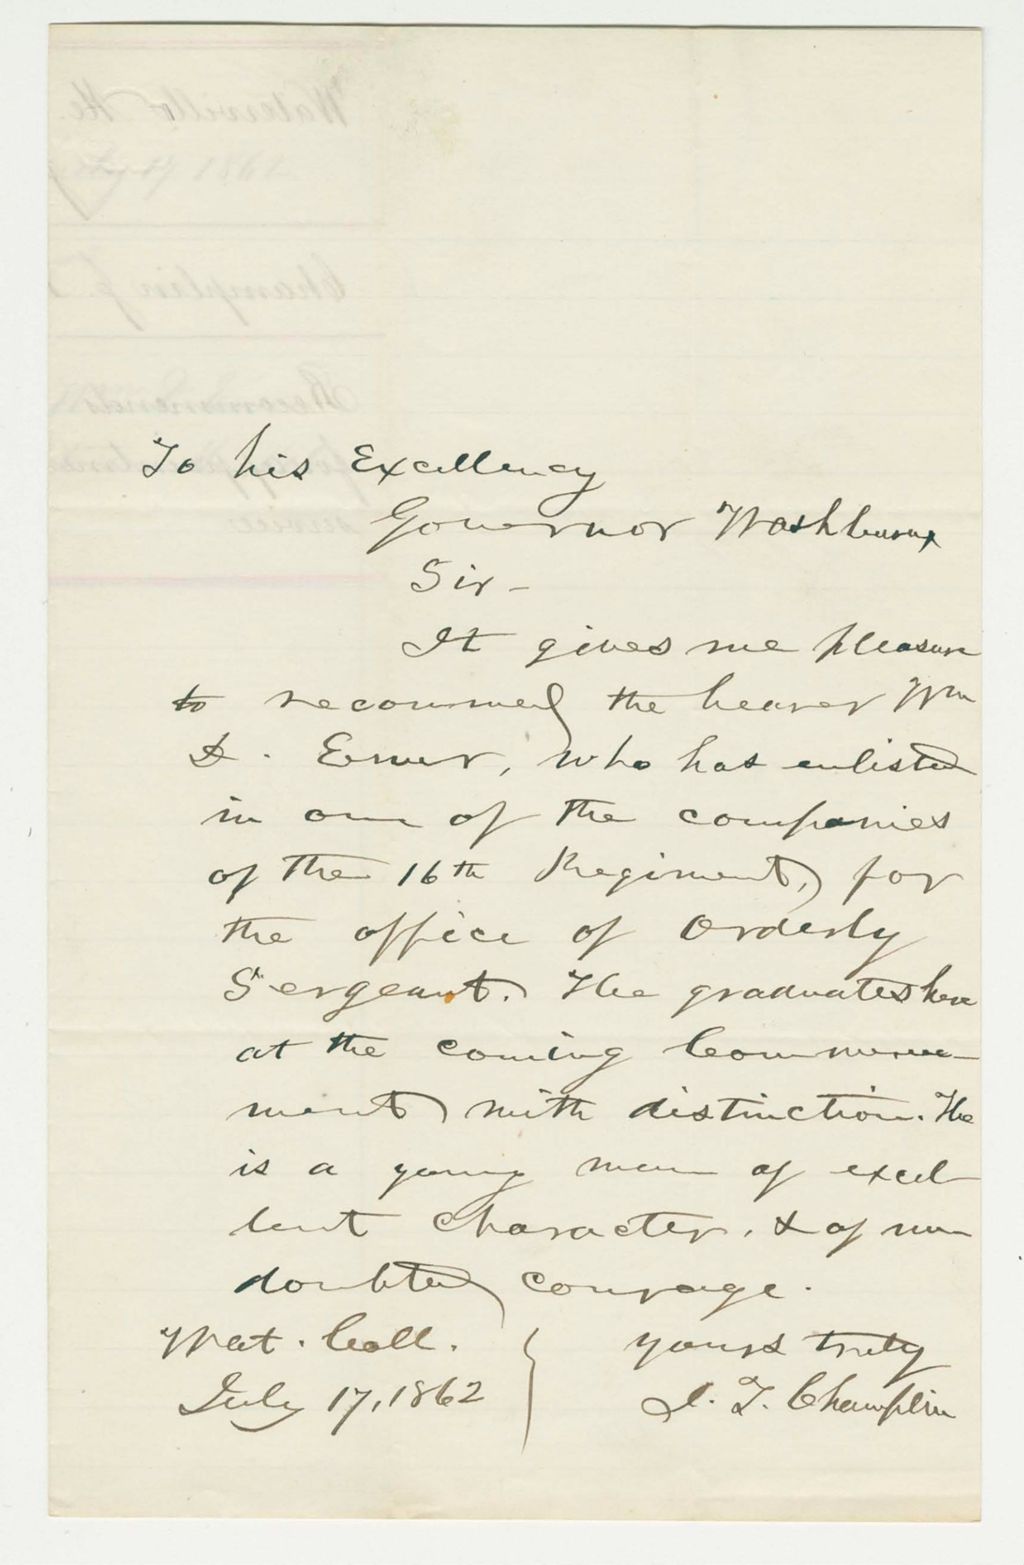 To his Excellency
Governor Washburn
Sir -
It gives me pleasure
to recommend the bearer Wm
D. Ewer, who has enlisted
in one of the companies
of the 16th Regiment, for
the office of Orderly
Sergeant. He graduates here
at the coming Commence-
ment with distinction. He
is a young man of excel-
lent character, & of un-
doubted courage.
Wat. Coll.
July 17, 1862
yours truly
J. T. Champlin